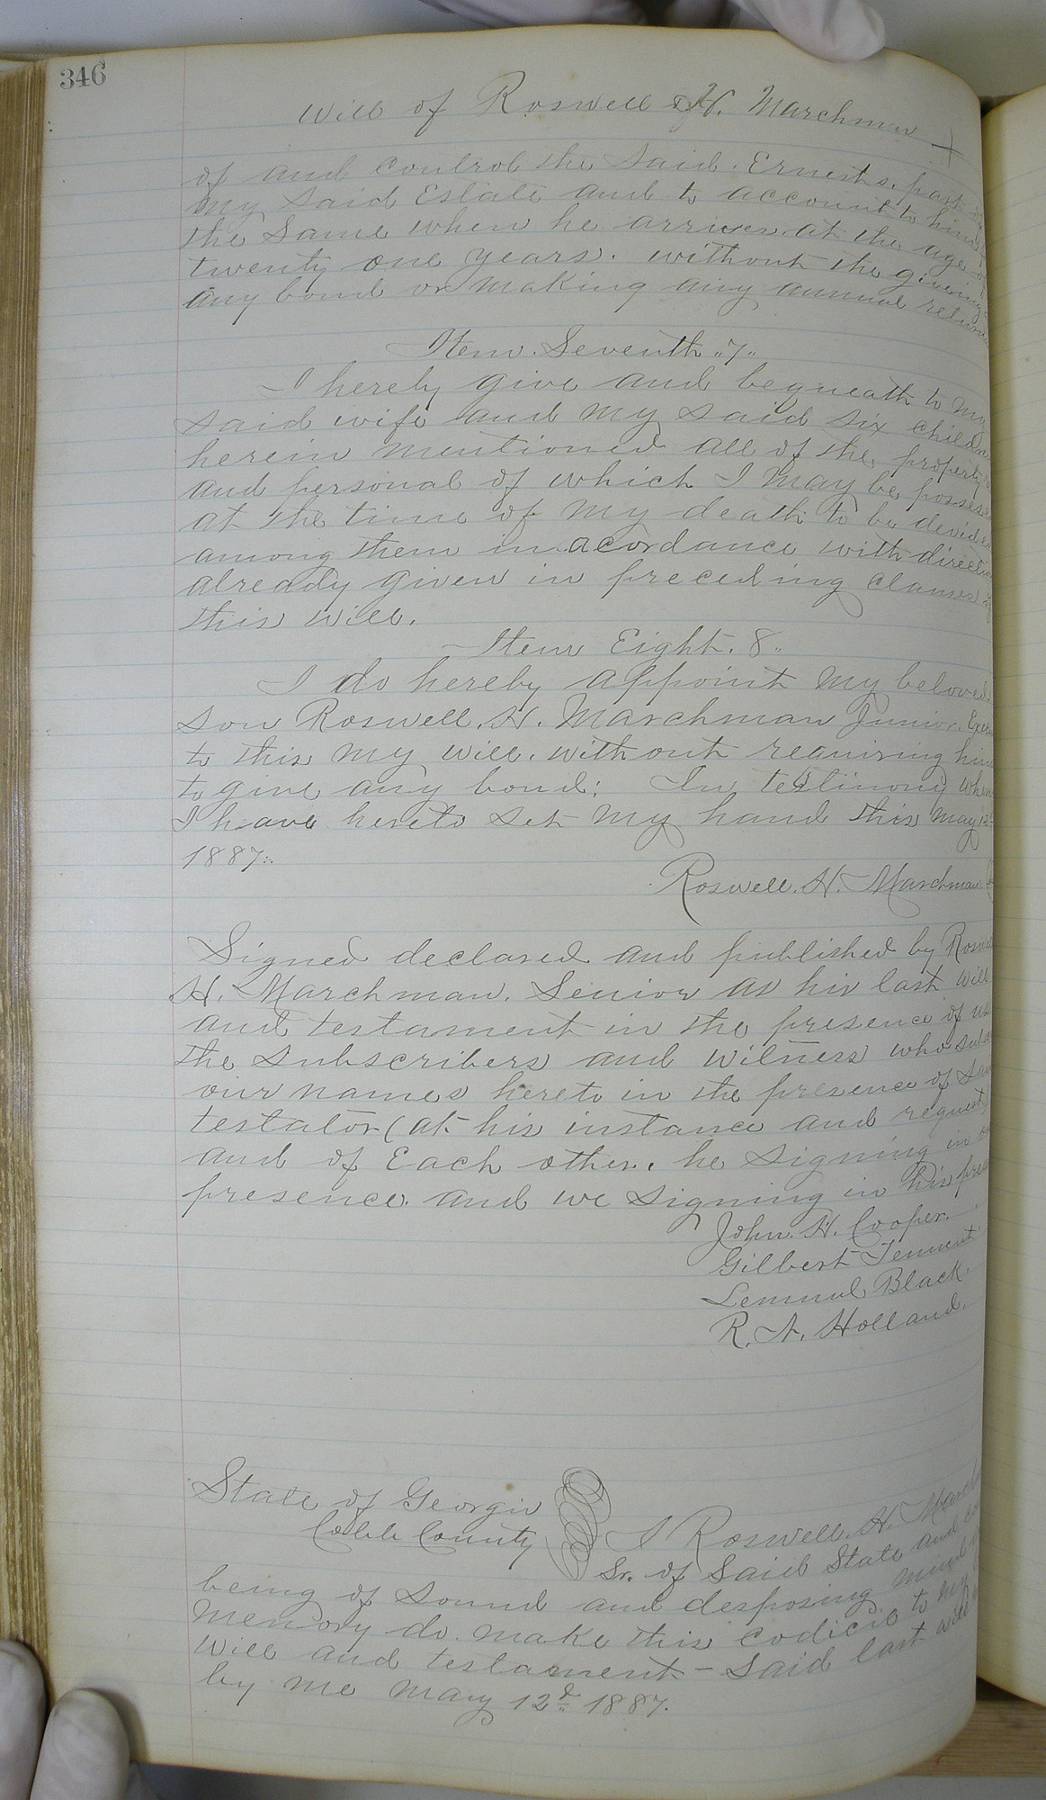 346
Will of Roswell H. Marchman
of and control the said Ernests. part
My said Estate and to account to him
the Same when he arrives at the age of
twenty one years. without the giving
any bond or making any annual return
Item. Seventh "7"
I hereby give and bequeath to My
said wife and my said six childr
herein mentioned all of the property
and personal of which I may be posses
at the time of my death to be devided
among them in acordance with direct
already given in preceding clauses
this will.
Item Eight. 8"
I do hereby appoint my beloved
son Roswell. H. Marchman Junior. Exe
to this my will. without requiring him
to give any bond: In testimony Whe
I have hereto set my hand this May 12
1887.
Roswell. H. Marchman
Signed declared and published by Rosw
H. Marchman. Senior as his last will
and testament in the presence of us
the subscribers and witness who sub
our names hereto in the presence of sa
testator (at his instance and request
and of Each other. he signing in
presence. and we signing in his pres
John. H. Cooper.
Gilbert Tennent
Lemuel Black.
R. N. Holland.
State of Georgia
Cobb County
I Roswell. H. March
Sr. of said State and co
being of sound and desposing mind
memory do. make this codicil to my
will and testament - said last will
by me May 12d 1887.